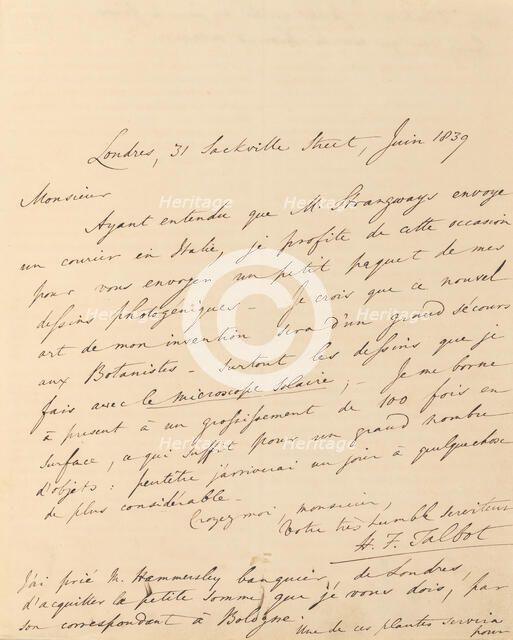 Londres, 31 Sackville Street, Juin 1839
Monsieur
Ayant entendu que Mr. Strangways envoye
un courier en Italie, je profite de cette occasion
pour vous envoyer un petit paquet de mes
dessins photogéniques – Je crois que ce nouvel
art de mon invention sera d'un grand sécours
aux Botanistes – surtout les dessins que je
fais avec le microscope solaire; – Je me borne
à présent à un grossissement de 100 fois en
surface, ce qui suffit pour un grand nombre
d'objets: peutêtre j'arriverai un jour à quelquechose
de plus considérable –
Croyez moi, monsieur,
Votre très humble serviteur
H. F. Talbot
J'ai prié M. Hammersley banquier de Londres,
d'acquitter la petite somme que je vous dois, par
son correspondant à Bologne.
Une de ces plantes servira
pour
Heritage
Images
Heritage
Images
Heritage
Images
Heritage
Images
Heritage
Images
Heritage
Images
C